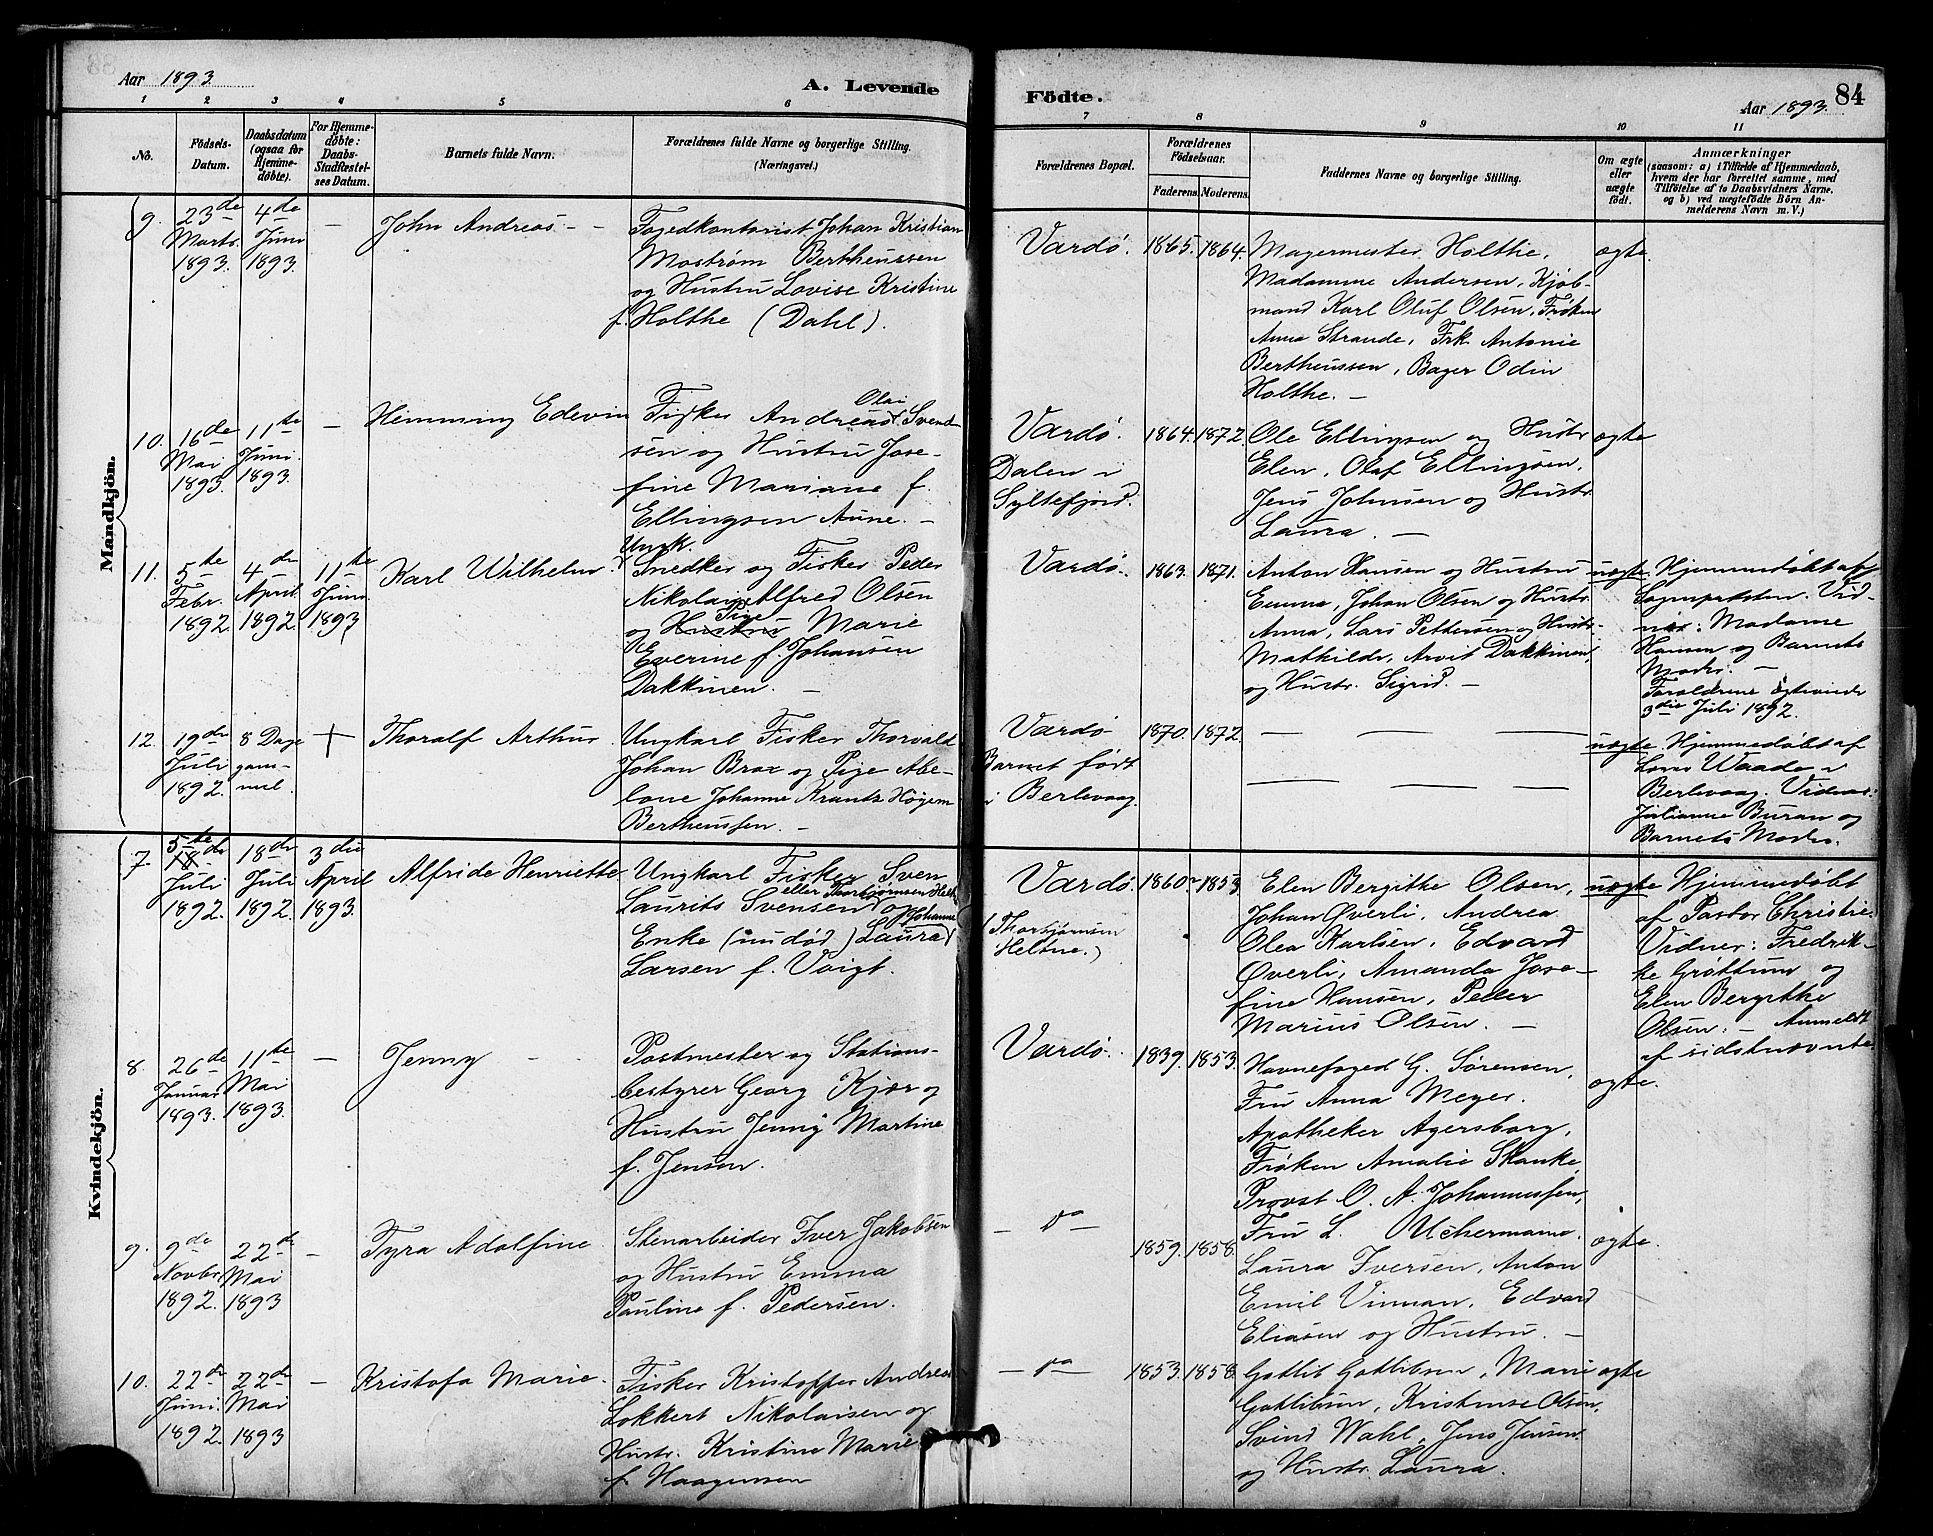 Aar 1893.
A. Levende
Födte.
84
Aar 1893.
1 2 3 4 5 6 7 8 9 10 11
No.
Födsels-
Datum.
Daabsdatum
(ogsaa for
Hjemme-
döbte).
For Hjemme-
döbte:
Daabs-
Stadfæstel-
ses Datum.
Barnets fulde Navn.
Forældrenes fulde Navne og borgerlige Stilling.
(Næringsvei.)
Forældrenes Bopæl.
Forældrenes
Födselsaar.
Faderens. Moderens.
Faddernes Navne og borgerlige Stilling.
Om ægte
eller
uægte
födt.
Anmærkninger
(saasom: a) i Tilfælde af Hjemmedaab,
hvem der har forrettet samme, med
Tilföielse af to Daabsvidners Navne.
og b) ved uægtefödte Börn An-
melderens Navn m. V.)
Mandkjön.
9.
23de
Marts
1893.
4de
Juni
1893.
–
John Andreas – –
Fogedkontorist Johan Kristian
Moström Bertheussen
og Hustru Lovise Kristine
f. Holthe (Dahl).
Vardø.
1865. 1864.
Magermester Holthe,
Madamme Andersen, Kjøb-
mand Karl Oluf Olsen, Frøken
Anna Strande, Frk. Antonie
Bertheussen, Bager Odin
Holthe. –
ægte.
10.
16de
Mai
1893.
11te
Juni
1893.
–
Hemming Edevin
Olai
Fisker Andreas Svend-
sen og Hustru Jose-
fine Mariane f.
Ellingsen Aune. –
Vardø.
Dalen i
Syltefjord.
1864. 1872.
Ole Ellingsen og Hustr
Elen, Olaf Ellingsen,
Jens Johnsen og Hustr.
Laura. –
ægte
11.
5te
Febr.
1892.
4de
April
1892.
11te
Juni
1893
Karl Wilhelm
Ungk.
Snedker og Fisker Peder
Nikolai Alfred Olsen
Pige
og Hustru Marie
Everine f. Johansen
Dakkinen. –
Vardø.
1863. 1871.
Anton Hansen og Hustru
Emma, Johan Olsen og Hustr.
Anna, Lars Pettersen og Hustr.
Mathilde, Arvit Dakkinen,
og Hustr. Sigrid. –
uægte.
Hjemmedøbt af
Sognepræsten. Vid-
ner: Madame
Hansen og Barnets
Moder. –
Forældrene ægteviede
3die Juli 1892.
12.
19de
Juli
1892.
8 Dage
gam-
mel.
+
Thoralf Arthur.
Ungkarl Fisker Thorvald
Johan Brox og Pige Abe-
lone Johanne Krantz Högem
Bertheussen. –
Vardø
Barnet født
i Berlevaag.
1870. 1872.
– – –
– – –
uægte.
Hjemmedøbt af
Waade i
Berlevaag. Vidner:
Julianne Buran og
Barnets Moder.
Kvindekjön.
7.
5te
18de
Juli
1892.
18de
Juli
1892.
3die
April
1893.
Alfride Henriette
Ungkarl Fisker Sven
eller Thorbjørnsen Heltne
Laurits Svensen og
Johanne
Enke (nudød) Laura
Larsen f. Voigt.
Vardø.
(Thorbjørnsen
Heltne.)
1860 1853
Elen Bergithe Olsen,
Johan Øverli, Andrea
Olea Karlsen, Edvard
Øverli, Amanda Jose-
fine Hansen, Peder
Marius Olsen. –
uægte
Hjemmedøbt
af Pastor Christie.
Vidner: Fredrik-
ke Grøttum og
Elen Bergithe
Olsen. – Anmeldt
af sidstnævnte.
8.
26de
Januar
1893.
11te
Mai
1893.
–
Jenny
Postmester og Stations-
bestyrer Georg Kjær og
Hustru Jenny Martine
f. Jensen.
Vardø.
1839. 1853.
Havnefoged G. Sørensen,
Fru Anna Meyer.
Apotheker Agersborg,
Frøken Amalie Skanke,
Provst O. A. Johannessen,
Fru L. Uchermann.
ægte.
9.
9de
Novbr
1892.
22de
Mai
1893
–
Tyra Adolfine
Stenarbeider Iver Jakobsen
og Hustru Emma
Pauline f. Pedersen.
– do –
1859. 1858.
Laura Iversen, Anton
Emil Vinnan, Edvard
Eliasen og Hustru. –
ægte.
10.
22de
Juni
1892.
22de
Mai
1893
–
Kristofa Marie.
Fisker Kristoffer Andreas
Lokkert Nikolaisen og
Hustr. Kristine Marie
f. Haagensen
– do –
1853. 1858.
Gotlib Gotlibsen, Marie
Gotlibsen, Kristense Olsen,
Svend Wahl, Jens Jensen
og Hustr. Laura.
ægte